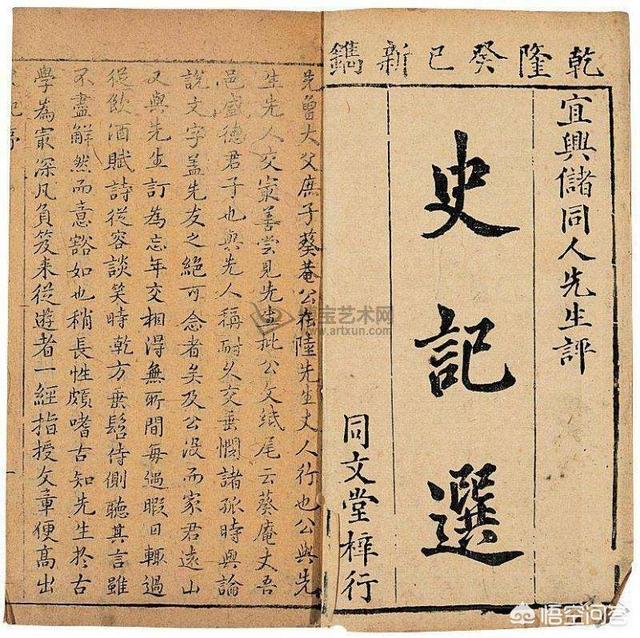 乾隆癸巳新鐫
宜興儲同人先生評
史記選
同文堂梓行
先曾大父庶子葵菴公在陸先生丈人行也公與先
生先人交㝡善嘗見先生批公文紙尾云葵庵丈吾
邑盛德君子也與先人稱耐久交垂憫諸孤時與論
說文字盖先友之絕可念者矣及公没而家君遠山
又與先生訂為忘年交相得無所間每遇暇日輒過
從飲酒賦詩從容談笑時乾方垂髫侍側聽其言雖
不盡解然而意豁如也稍長性頗嗜古知先生於古
學為㝡深凡負笈来從遊者一經指授文章便高出
宝艺术网
www.artxun.com
悟空问答